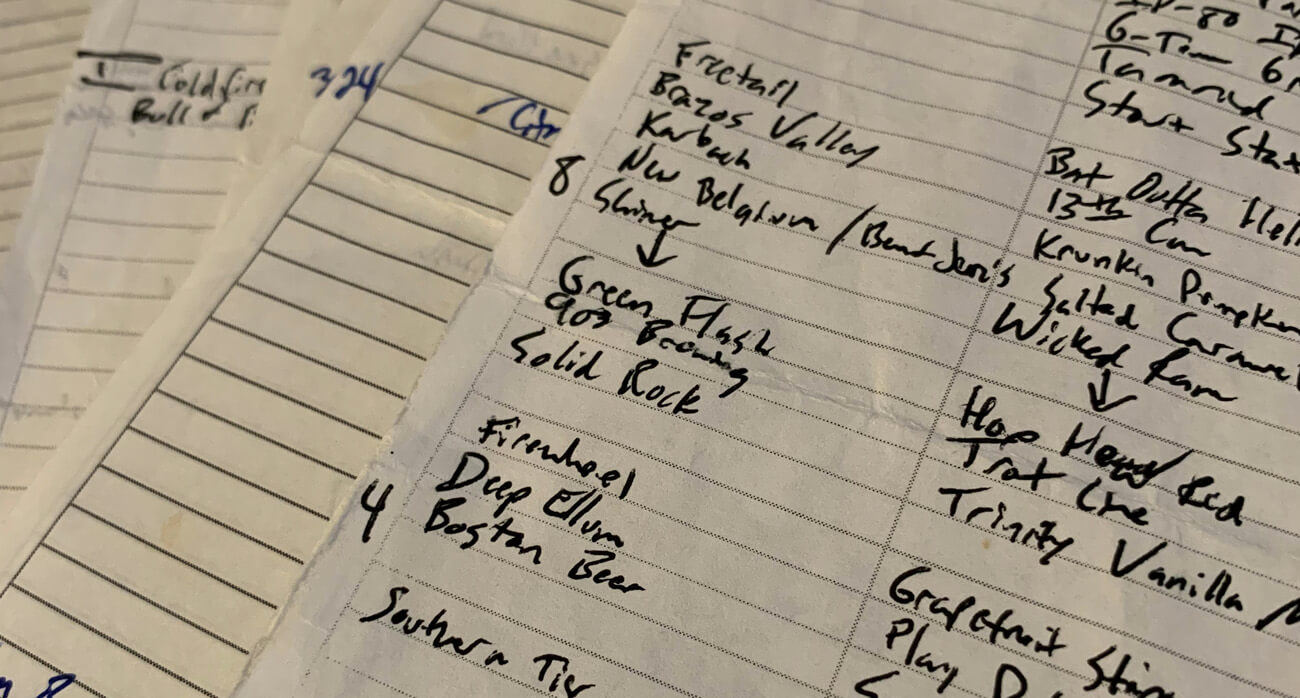 1 Coldfire
Bull &
324
Freetail
Brazos Valley
Karbach
New Belgium / Ben & Jerry's
8 Shiner
↓
Green Flash
903 Brewing
Solid Rock
Firewheel
Deep Ellum
4 Boston Beer
Southern Tier
6-Ton
Start
Bat Outta Hell
13th Can
Krunkin Pumpkin
Salted Caramel
Wicked Ram
↓
Hop Head Red
Trot Line
Trinity Vanilla
Grapefruit
Play
8